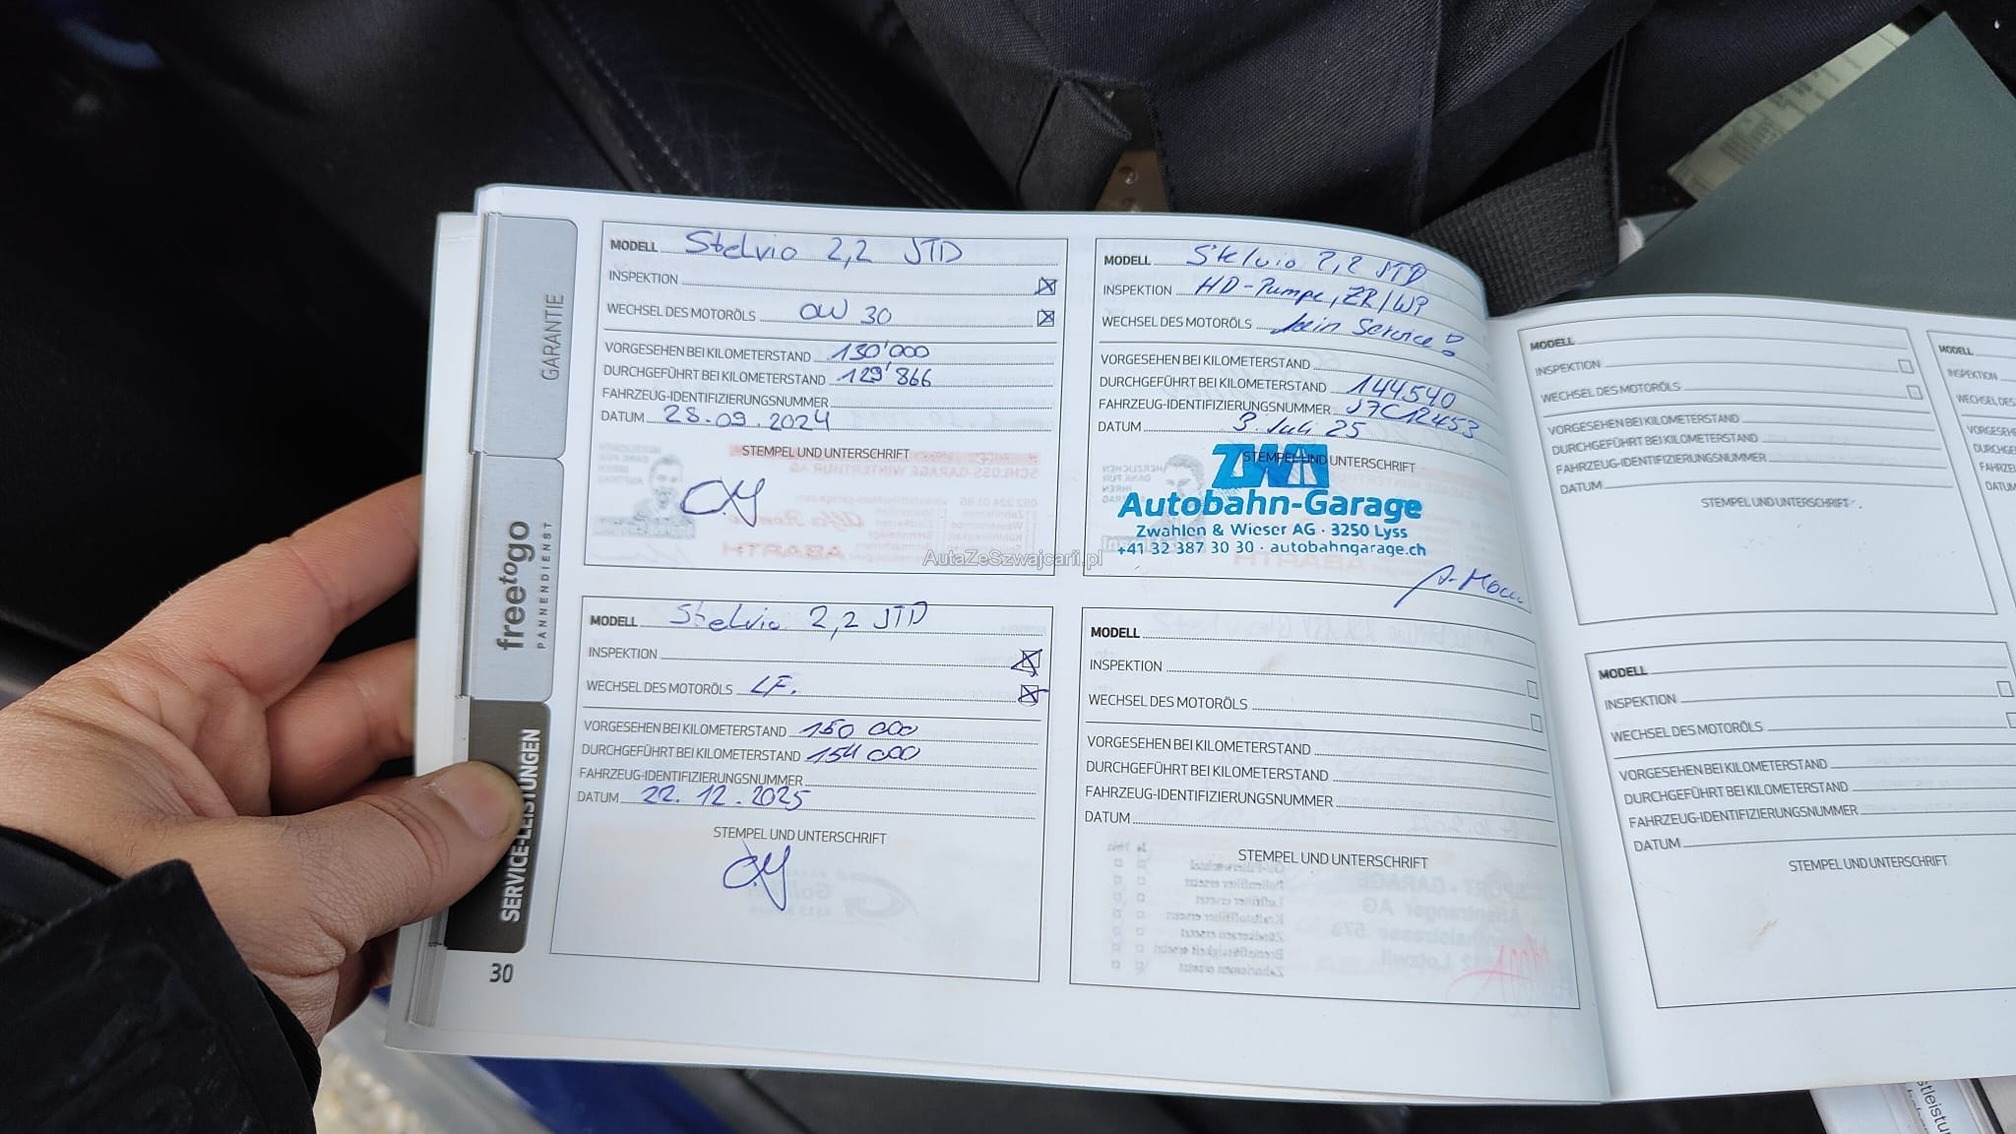 GARANTIE
freetogo
PANNENDIENST
SERVICE-LEISTUNGEN
30
MODELL Stelvio 2,2 JTD
INSPEKTION
WECHSEL DES MOTORÖLS 0W 30
VORGESEHEN BEI KILOMETERSTAND 130'000
DURCHGEFÜHRT BEI KILOMETERSTAND 129'866
FAHRZEUG-IDENTIFIZIERUNGSNUMMER
DATUM 28.09.2024
STEMPEL UND UNTERSCHRIFT
MODELL Stelvio 2,2 JTD
INSPEKTION HD-Pumpe, ZR/WP
WECHSEL DES MOTORÖLS kein Service!
VORGESEHEN BEI KILOMETERSTAND
DURCHGEFÜHRT BEI KILOMETERSTAND 144540
FAHRZEUG-IDENTIFIZIERUNGSNUMMER J7C12453
DATUM 3. Juli 25
STEMPEL UND UNTERSCHRIFT
ZWA
Autobahn-Garage
Zwahlen & Wieser AG · 3250 Lyss
+41 32 387 30 30 · autobahngarage.ch
AutaZeSzwajcarii.pl
MODELL Stelvio 2,2 JTD
INSPEKTION
WECHSEL DES MOTORÖLS LF.
VORGESEHEN BEI KILOMETERSTAND 150 000
DURCHGEFÜHRT BEI KILOMETERSTAND 154 000
FAHRZEUG-IDENTIFIZIERUNGSNUMMER
DATUM 22.12.2025
STEMPEL UND UNTERSCHRIFT
MODELL
INSPEKTION
WECHSEL DES MOTORÖLS
VORGESEHEN BEI KILOMETERSTAND
DURCHGEFÜHRT BEI KILOMETERSTAND
FAHRZEUG-IDENTIFIZIERUNGSNUMMER
DATUM
STEMPEL UND UNTERSCHRIFT
MODELL
INSPEKTION
WECHSEL DES MOTORÖLS
VORGESEHEN BEI KILOMETERSTAND
DURCHGEFÜHRT BEI KILOMETERSTAND
FAHRZEUG-IDENTIFIZIERUNGSNUMMER
DATUM
STEMPEL UND UNTERSCHRIFT
MODELL
INSPEKTION
WECHSEL DES MOTORÖLS
VORGESEHEN BEI KILOMETERSTAND
DURCHGEFÜHRT BEI KILOMETERSTAND
FAHRZEUG-IDENTIFIZIERUNGSNUMMER
DATUM
STEMPEL UND UNTERSCHRIFT
MODELL
INSPEKTION
WECHSEL DES